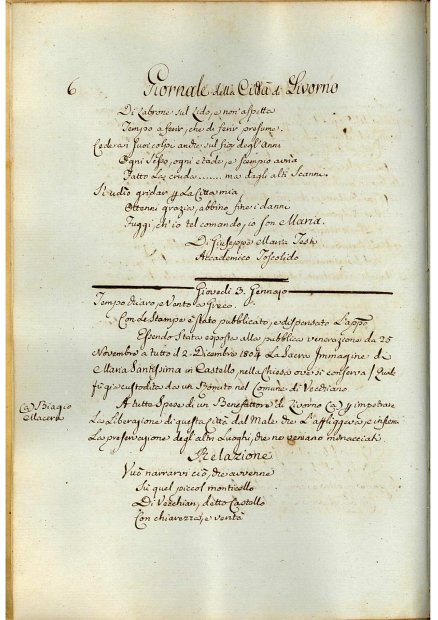 6
Giornale della Città di Livorno
Di Labrone sul Lido, e non aspetta
Tempo a ferir, che di ferir presume.
Cedean suoi colpi anche sul fior degl'Anni
Ogni Sesso, ogni etade, e scempio avria
Fatto La cruda....... ma dagli alti Scanni.
Si udìo gridar La Città mia,
Ottenni grazia, abbino fine i danni
Fuggi, ch'io tel comando, io son Maria.
Di Giuseppe Maria
Accademico Toscolido
Giovedì 3. Gennajo
Tempo chiaro, e Vento a Greco.
Con le Stampe è stato pubblicato, e dispensato L'appo
Essendo Stata esposta alla pubblica venerazione da 25
Novembre a tutto il 2. Dicembre 1804 La Sacra Immagine di
Maria Santissima in Castello, nella Chiesa ove si conserva / Quale
fu già custodita da un Romito nel Comune di Vecchiano
(a) Biagio
Macera
A tutte Spese di un Benefattore di Livorno (a) impetrare
La Liberazione di questa Città dal Male che L'affliggeva, e insieme
La preservazione degli altri Luoghi, che ne venivano minacciati.
Relazione
Vuò narrarvi ciò, che avvenne
Su quel piccol monticello
Di Vecchian, detto Castello
Con chiarezza, e verità